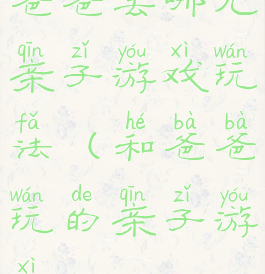 爸爸去哪儿
qīn zǐ yóu xì wán
亲子游戏玩
fǎ hé bà bà
法（和爸爸
wán de qīn zǐ yóu
玩的亲子游
xì